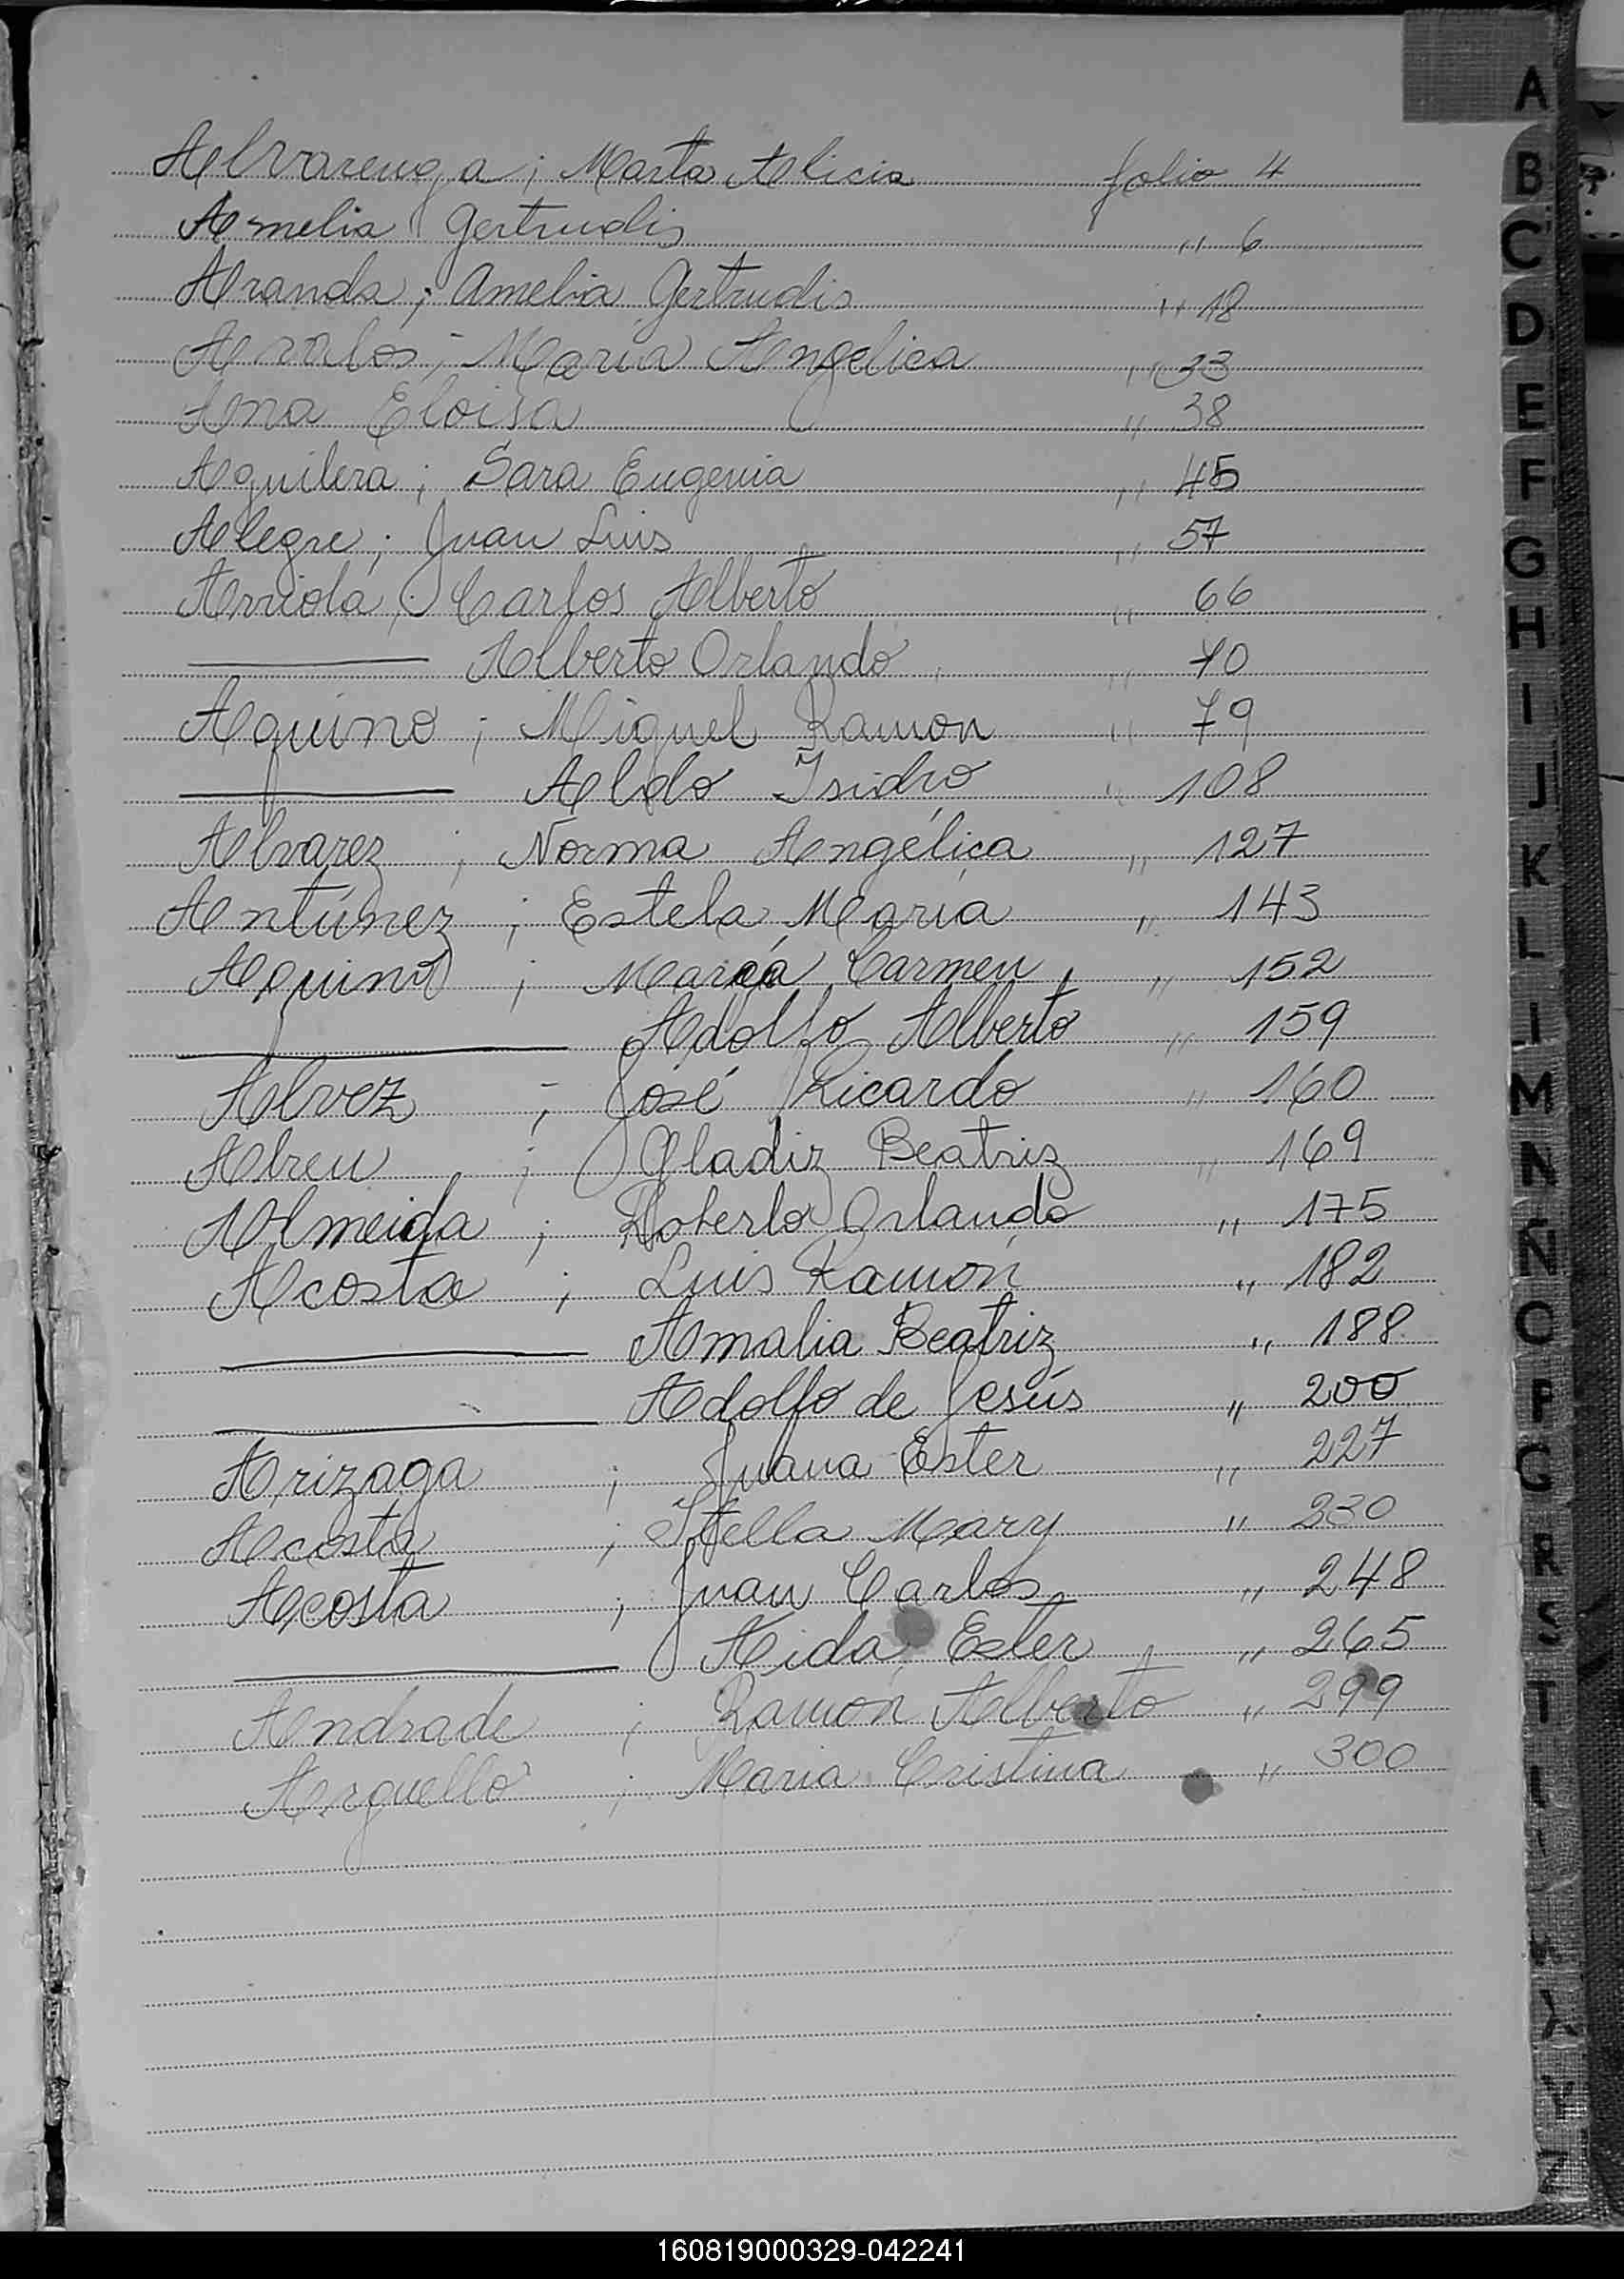 Alvarenga; Marta Alicia folio 4
Amelia Gertrudis " 6
Aranda; Amelia Gertrudis " 18
Avalos; María Angelica " 33
Ana Eloisa " 38
Aguilera; Sara Eugenia " 45
Alegre; Juan Luis " 57
Arriola; Carlos Alberto " 66
——— Alberto Orlando " 70
Aquino; Miguel Ramon " 79
——— Aldo Isidro " 108
Alvarez; Norma Angélica " 127
Antúnez; Estela María " 143
Aquino; María Carmen " 152
——— Adolfo Alberto " 159
Alvez; José Ricardo " 160
Abreu; Gladiz Beatriz " 169
Almeida; Roberto Orlando " 175
Acosta; Luis Ramón " 182
——— Amalia Beatriz " 188
——— Adolfo de Jesús " 200
Arizaga; Juana Ester " 227
Acosta; Stella Mary " 230
Acosta; Juan Carlos " 248
——— Aida Ester " 265
Andrade; Ramón Alberto " 299
Arguello; Maria Cristina " 300
A
B
C
D
E
F
G
H
I
J
K
L
M
N
Ñ
O
P
R
S
T
Y
Z
160819000329-042241